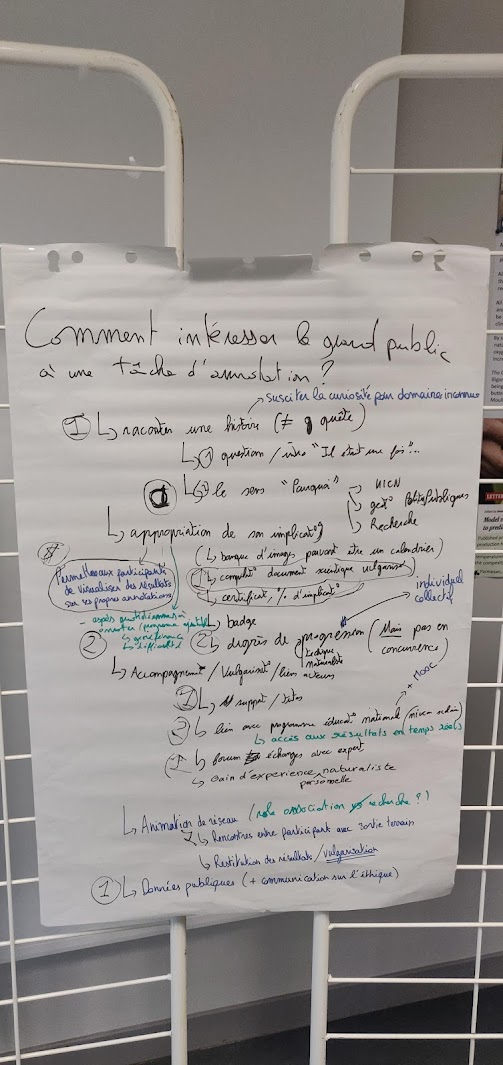 Comment intéresser le grand public
à une tâche d'annotation ?
susciter la curiosité pour domaines inconnus
① ↳ raconter une histoire (≠ quête)
↳ ① question / intro "Il était une fois"...
↳ le sens "Pourquoi"
UICN
gest° Politiq Publiques
Recherche
↳ appropriation de son implicat°
Permettre aux participants
de visualiser des résultats
sur ses propres annotations
(banque d'images pouvant être un calendrier)
document scientifique vulgarisé
↳ certificat, % d'implicat°
↳ badge
individuel
collectif
- aspect quotidienneté
↳ difficulté
② ② ↳ degrés de progression (Mais pas en
concurrence)
↳ Accompagnement / Vulgarisat° / liens acteurs
naturaliste
① ↳ support / tutos
+ MOOC
② ↳ lien avec programme éducat° national (niveau scolaire)
↳ accès aux résultats en temps réel
① ↳ forum échanges avec expert
↳ Gain d'experience naturaliste
personnelle
↳ Animation de réseau (role association recherche ?)
↳ Rencontres entre participant avec sortie terrain
↳ Restitution des résultats / vulgarisation
① ↳ Données publiques (+ communication sur l'éthique)